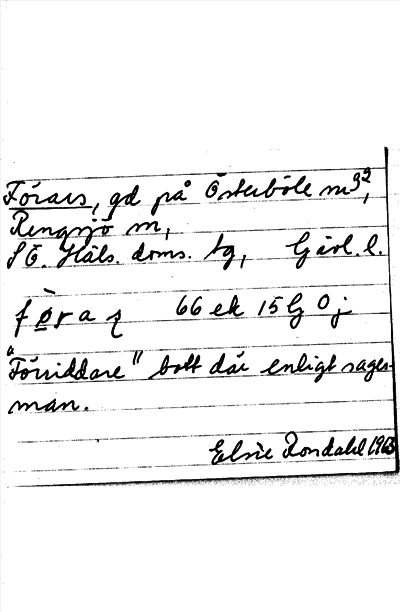 Förars, gd på Österböle m³²,
Rengsjö m,
SÖ. Häls. doms. tg, Gävl. l.
føraʐ 66 ek 15 G 0 j
"Förriddare" bott där enligt sages-
man.
Elsie Rondahl 1963